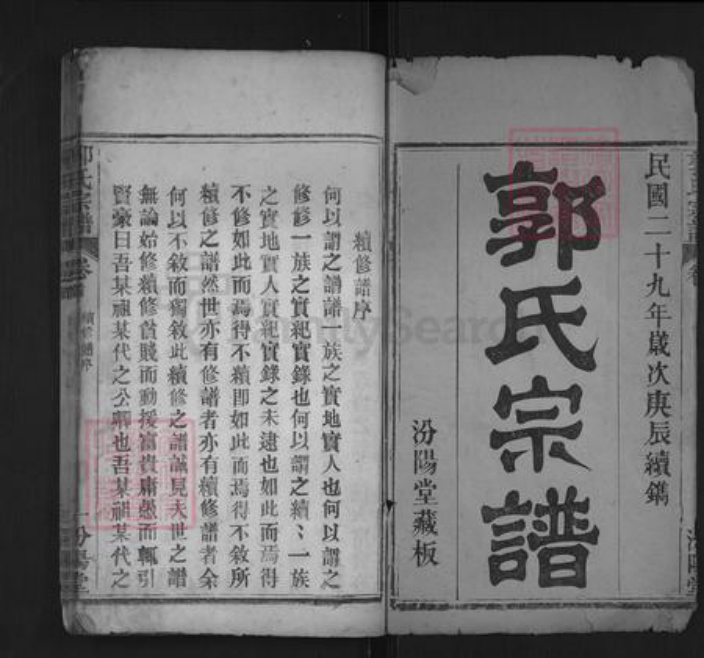 民國二十九年歲次庚辰續鐫
郭氏宗譜
汾陽堂藏板
續修譜序
何以謂之譜譜一族之實地實人也何以謂之
修修一族之實紀實錄也何以謂之續〻一族
之實地實人實紀實錄之未逮也如此而焉得
不修如此而焉得不續即如此而焉得不敘所
續修之譜然世亦有修譜者亦有續修譜者余
何以不敘而獨敘此續修之譜誠見夫世之譜
無論始修續修貧賤而動援富貴庸愚而輒引
賢豪曰吾某祖某代之公卿也吾某祖某代之
郭氏宗譜 卷 續修譜序 一 汾陽堂
FamilySearch